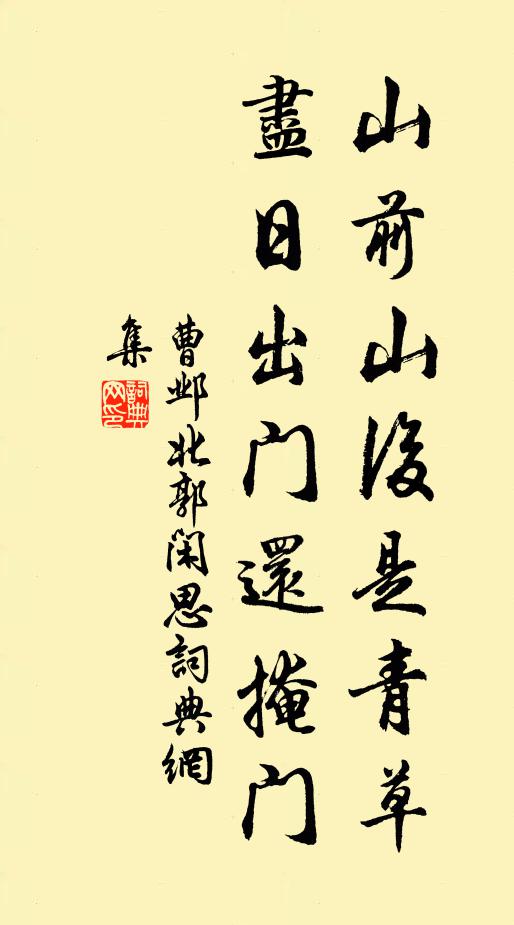 山前山後是青草
盡日出門還掩門
曹邺北郭閑思詞典網
集
詞典
网印